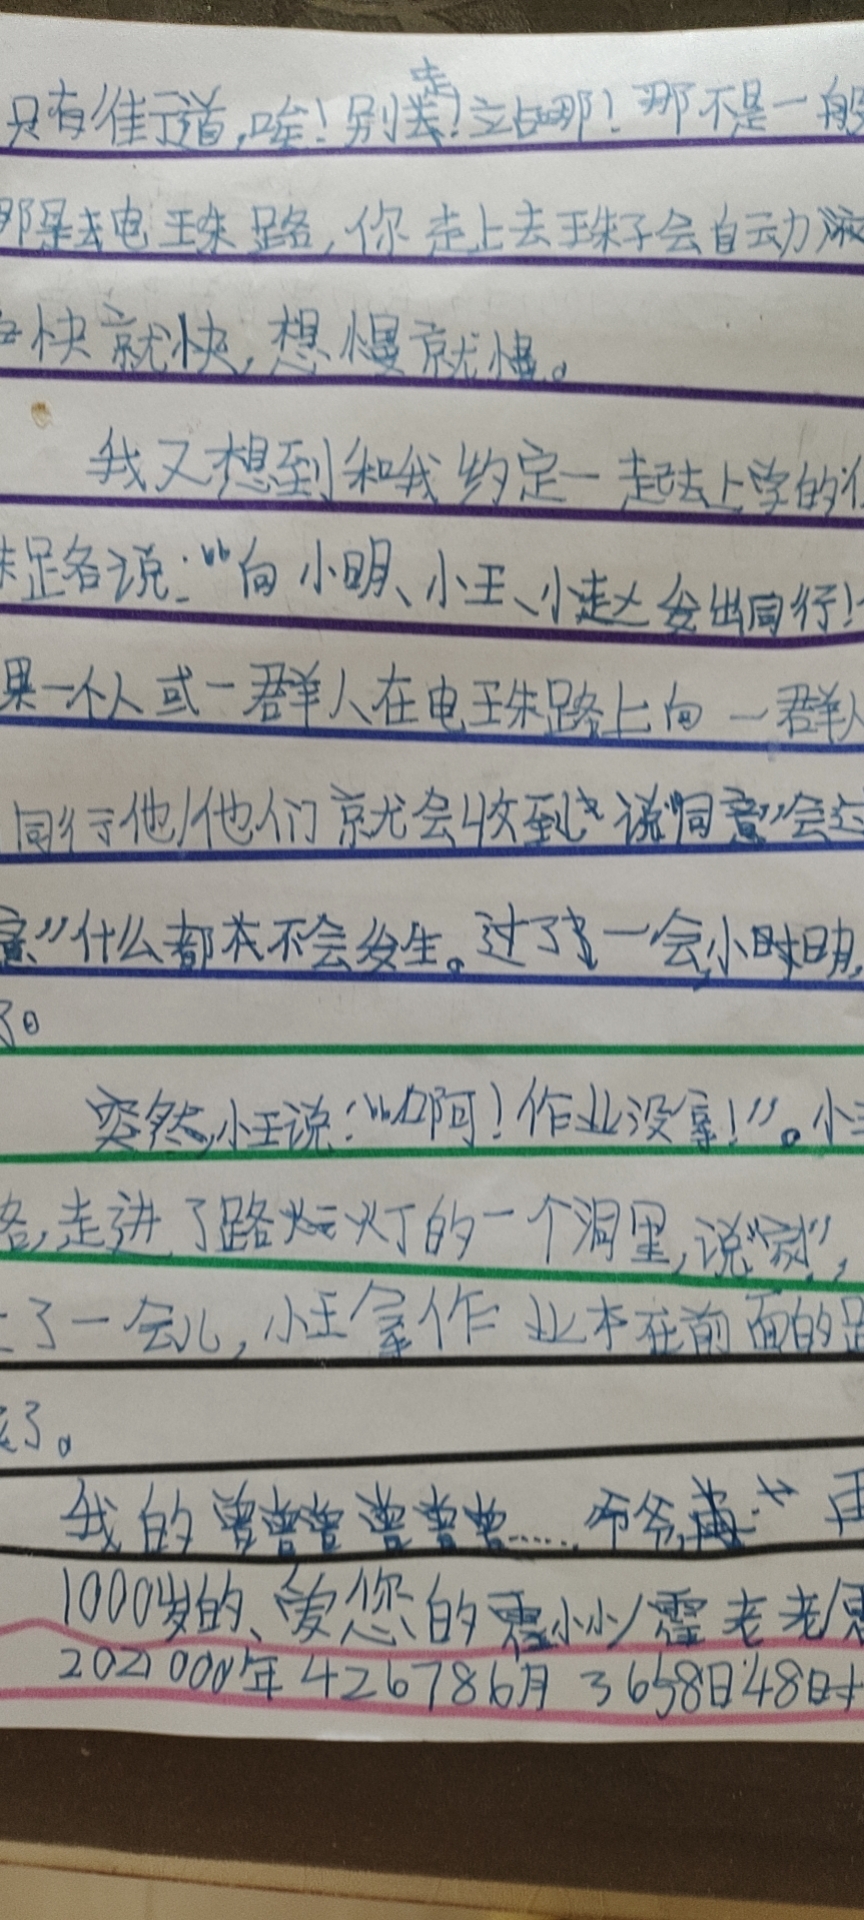 只有/佳一道,唉!别走!立占那!那不是一般
那是去电王朱路,你走上去王朱子会自云力滚
快就快,想慢就慢。
我又想到和我约定一起去上学的
路说:“向小明、小王、小赵发出同行!
果一个人或一群人在电王朱路上向一群人
同行他/他们就会收到,说“同意”会
意”什么都不会发生。过了一会,小时明,
了。
突然,小王说:“啊!作业没拿!”。小
路,走进了路灯的一个洞里,说“家”,
了一会儿,小王拿作业本在前面的路
了。
我的曾曾曾曾曾曾……爷爷,
1000岁的、爱您的霍小小/霍老老/霍
2021000年426786月3658日48时